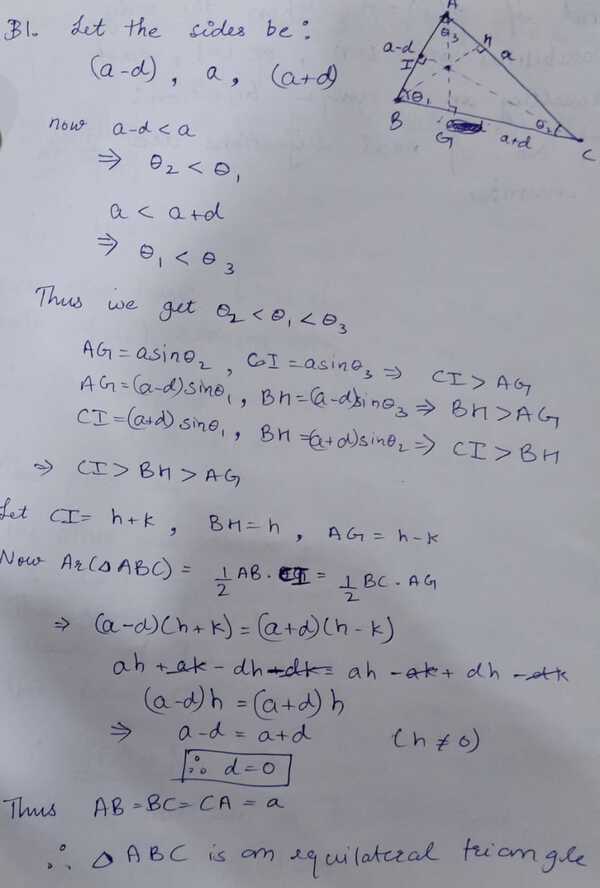 B1. Let the sides be:
(a-d), a, (a+d)
now a-d < a
⇒ θ₂ < θ₁
a < a+d
⇒ θ₁ < θ₃
Thus we get θ₂ < θ₁ < θ₃
AG = a sinθ₂, CI = a sinθ₃ ⇒ CI > AG
AG = (a-d) sinθ₁, BH = (a-d) sinθ₃ ⇒ BH > AG
CI = (a+d) sinθ₁, BH = (a+d) sinθ₂ ⇒ CI > BH
⇒ CI > BH > AG
Let CI = h+k, BH = h, AG = h-k
Now Ar(△ABC) = 1/2 AB. CI = 1/2 BC. AG
⇒ (a-d)(h+k) = (a+d)(h-k)
ah + ak - dh - dk = ah - ak + dh - dk
(a-d)h = (a+d)h
⇒ a-d = a+d (h ≠ 0)
∴ d = 0
Thus AB = BC = CA = a
∴ △ ABC is an equilateral triangle
A
θ₃
a-d
I
H
a
θ₁
B
G
a+d
θ₂
C